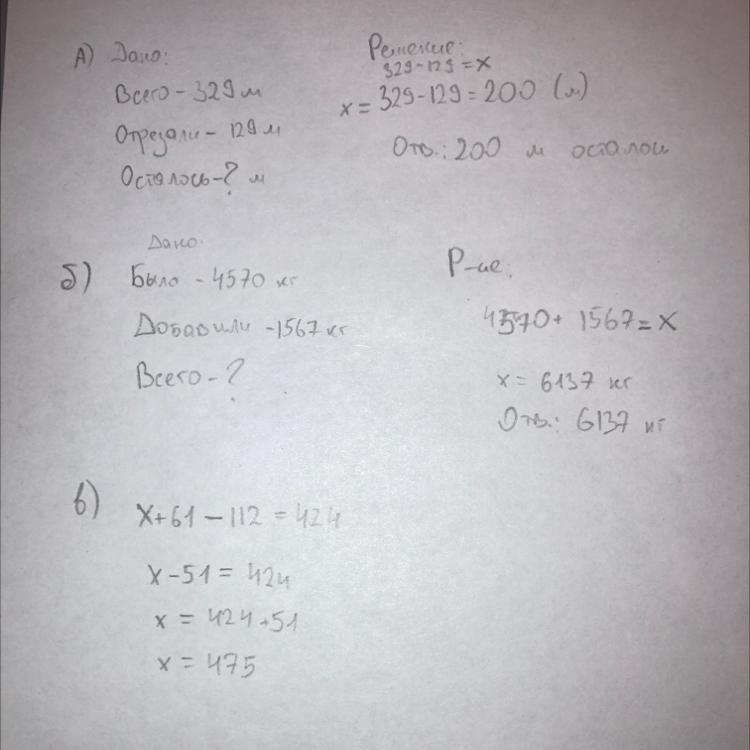 А) Дано:
Всего - 329 м
Отрезали - 129 м
Осталось - ? м
Решение:
329-129=x
x = 329-129=200 (м)
Отв.: 200 м осталось
б) Дано:
Было - 4570 кг
Добавили - 1567 кг
Всего - ?
Р-ие:
4570+ 1567=x
x = 6137 кг
Отв.: 6137 кг
в)
x+61-112 = 424
x-51= 424
x = 424+51
x = 475